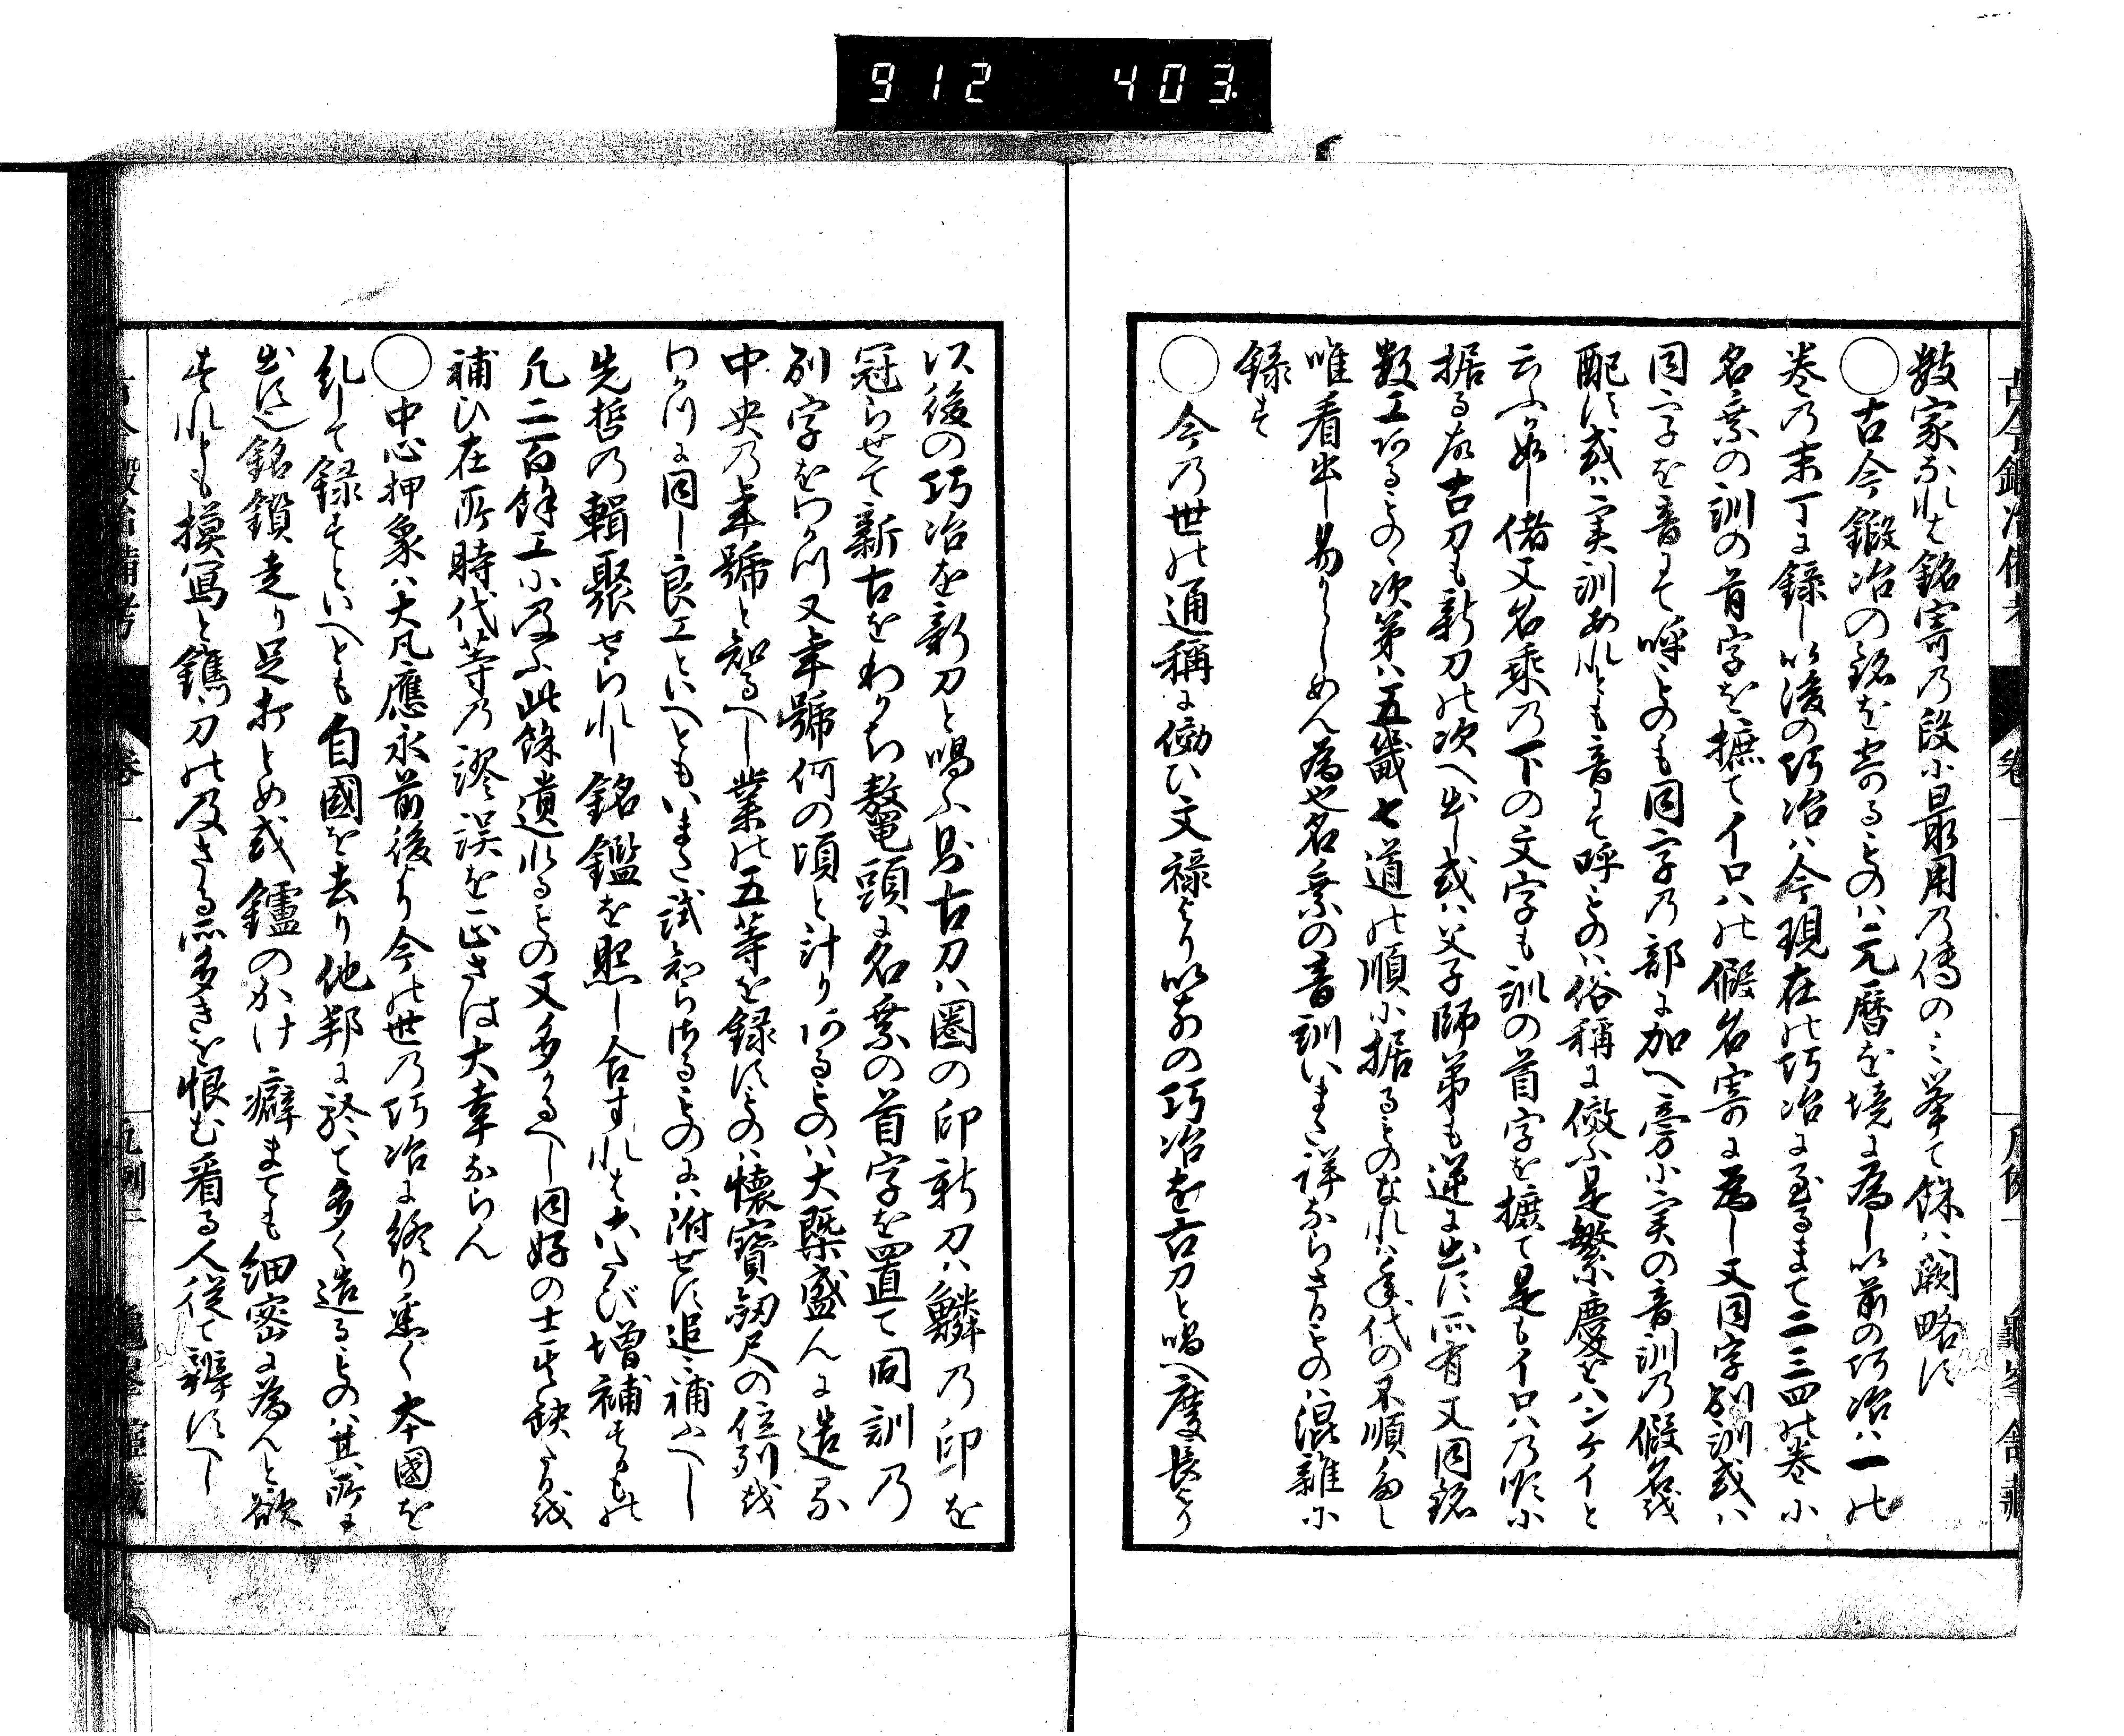 912 403
古今鍛冶備考 巻一 凡例一 龜峯舘藏
數家なれは銘寄の段に最用の傳のミ挙て餘ハ闕略す
○古今鍛冶の銘を寄るものハ元暦を境に為し以前の巧冶ハ一の
巻の末丁に録し以後の巧冶ハ今現在の巧冶に至るまて二三四の巻に
名乗の訓の首字を摭てイロハの假名寄に為し又同字別訓或ハ
同字を音にて呼ものも同字の部に加へ旁に実の音訓の假名を
配す或ハ実訓あれとも音にて呼ものハ俗稱に傚ふ是繁慶をハンケイと
云ふか如し偖又名乗の下の文字も訓の首字を摭て是もイロハの順に
据る故古刀も新刀の次へ出し或ハ父子師弟も逆に出す所有又同銘
数工あるものゝ次第ハ五畿七道の順に据るものなれハ年代の不順多し
唯看出し易からしめん為也名乗の音訓いまた詳ならさるものハ混雜に
録す
○今の世の通稱に傚ひ文禄より以前の巧冶を古刀と唱へ慶長より
以後の巧冶を新刀と唱ふ則古刀ハ圏の印新刀ハ鱗の印を
冠らせて新古をわかち鼇頭に名乗の首字を置て同訓の
別字をわかつ又年號何の頃と計りあるものハ大槩盛んに造る
中央の年號と知るへし業の五等を録すものハ懐寶劔尺の位列を
わかつに同し良工といへともいまた試知らさるものにハ附せす追て補ふへし
先哲の輯聚せられし銘鑑を照し合すれともたび増補するもの
凡二百餘工に及ふ此餘遺れるもの又多かるへし同好の士其缺たるを
補ひ在所時代等の謬誤を正さは大幸ならん
○中心押象ハ大凡應永前後より今の世の巧冶に終り悉く本國を
糺して録すといへとも自國を去り他邦に終て多く造るものハ其所に
出す銘鏨走り足打とめ或鑢のかけ癖まても細密に為んと欲
すれとも摸寫と鐫刀の及さる所多きを恨む看る人従て辨すへし
古今鍛冶備考 巻一 凡例二 龜峯舘藏